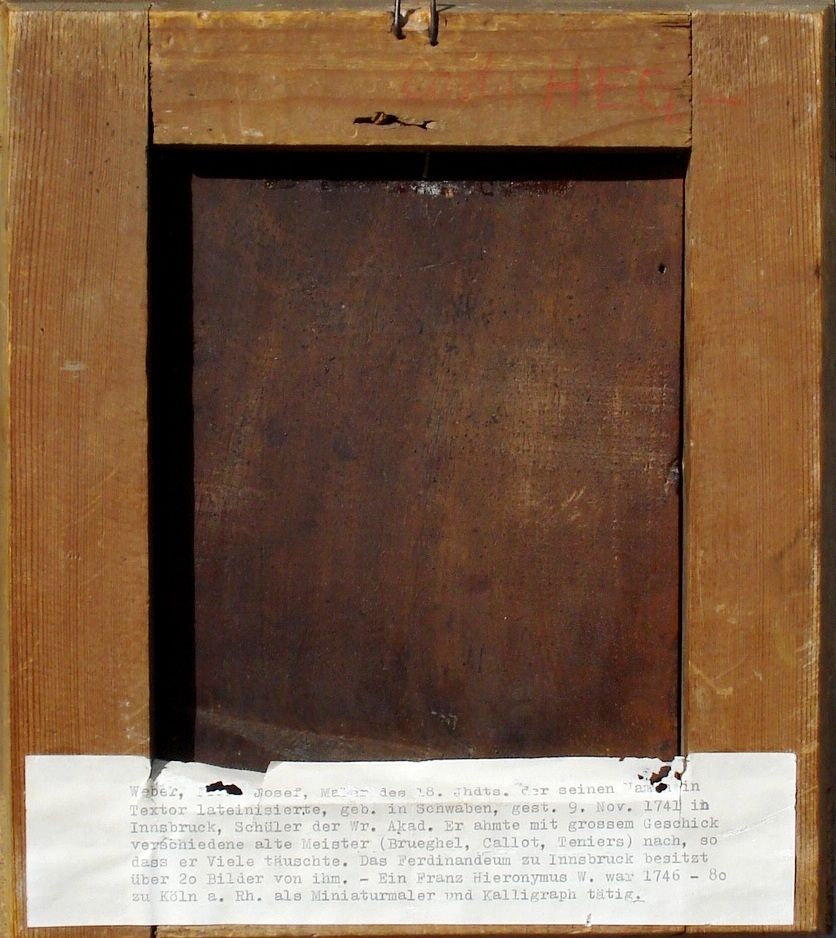 HEG
Weber, Josef, Maler des 18. Jhdts. der seinen Namen in
Textor lateinisierte, geb. in Schwaben, gest. 9. Nov. 1741 in
Innsbruck, Schüler der Wr. Akad. Er ahmte mit grossem Geschick
verschiedene alte Meister (Brueghel, Callot, Teniers) nach, so
dass er Viele täuschte. Das Ferdinandeum zu Innsbruck besitzt
über 2o Bilder von ihm. - Ein Franz Hieronymus W. war 1746 - 8o
zu Köln a. Rh. als Miniaturmaler und Kalligraph tätig.